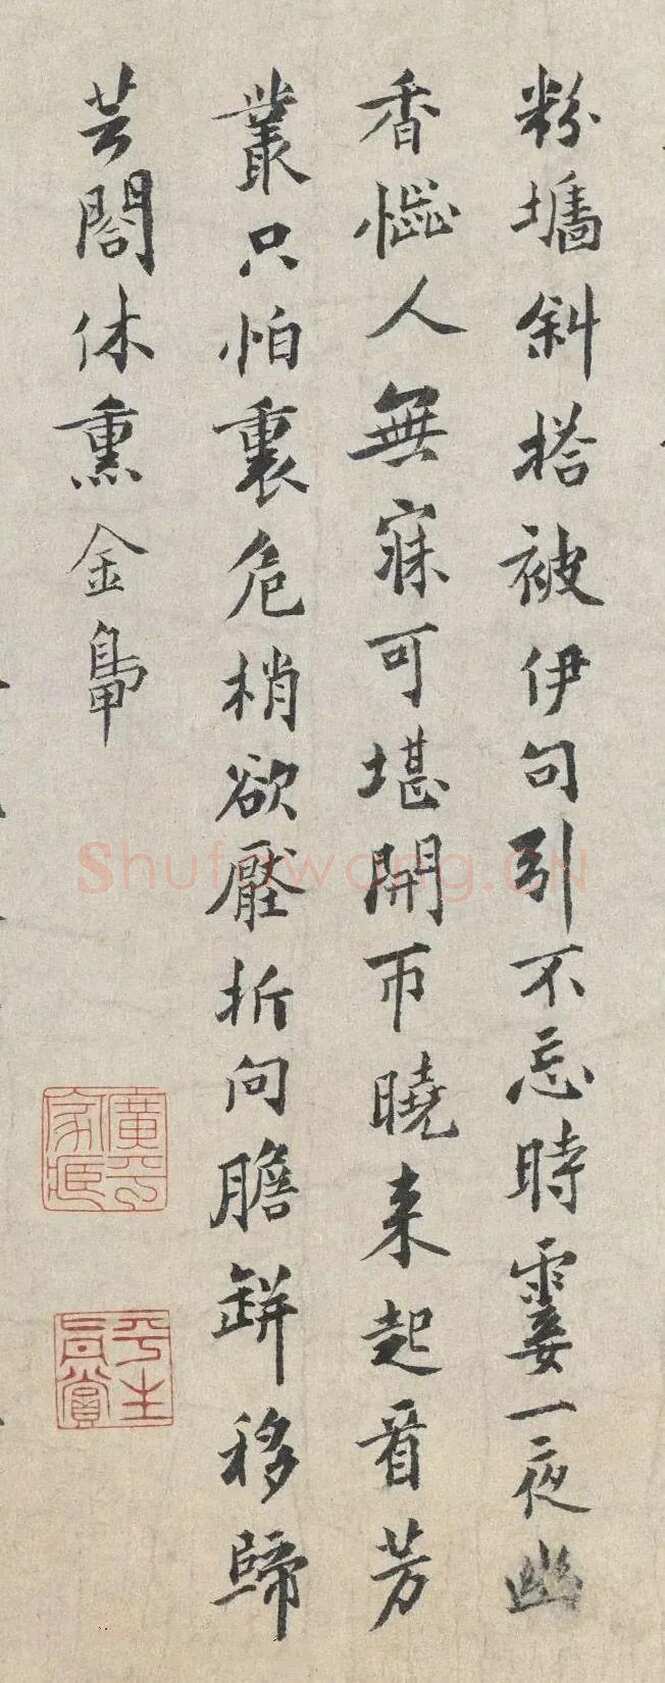 粉墻斜搭被伊勾引不忘時霎一夜幽
香惱人無寐可堪開帀曉来起看芳
叢只怕裏危梢欲壓折向膽缾移歸
芸閣休熏金鳧
Shufawang.CN
平生
真賞